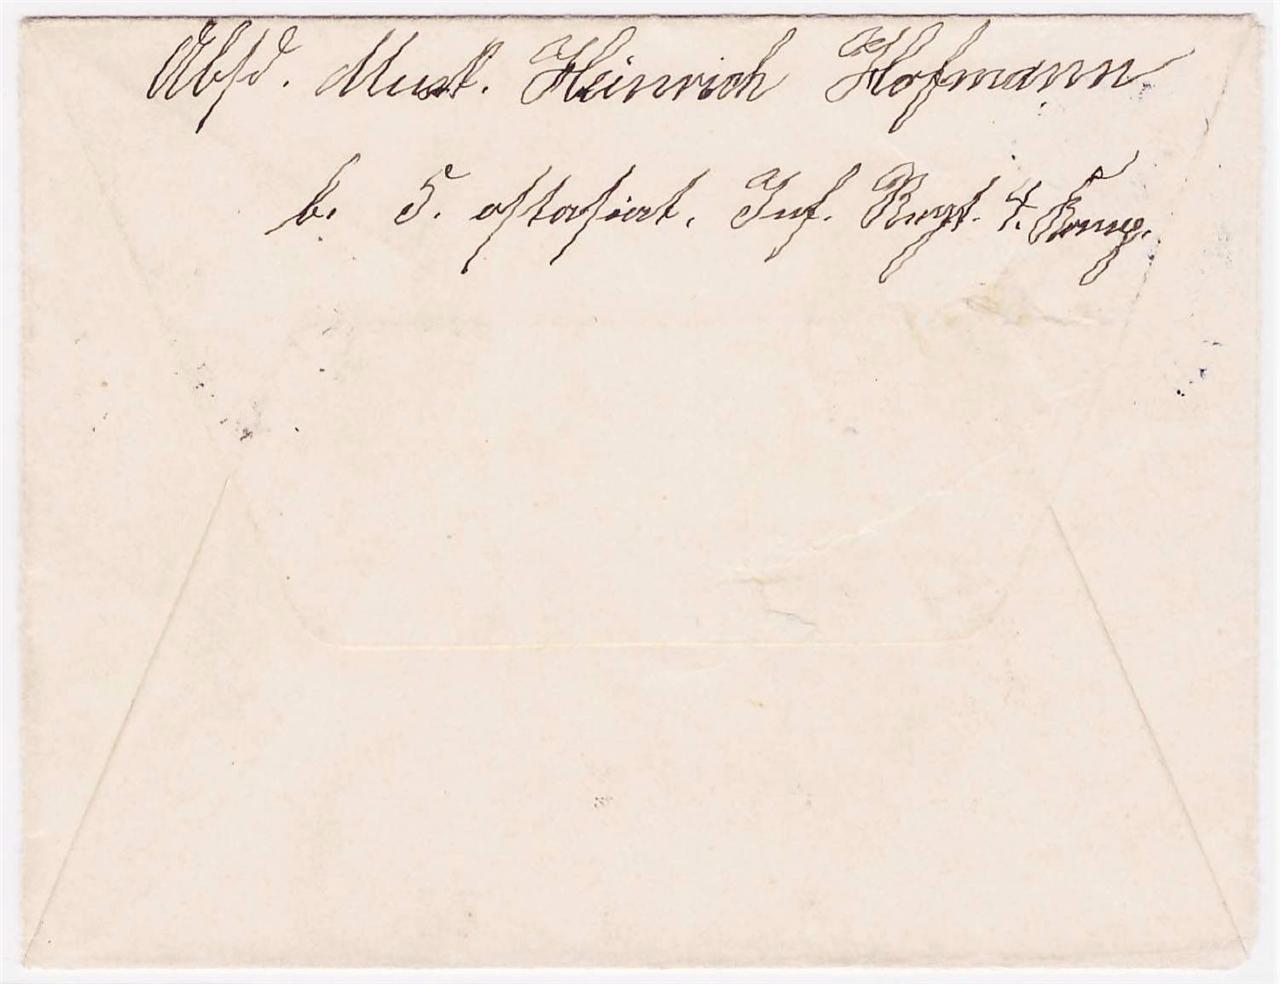 Absd. Musk. Heinrich Hofmann
b. 5. ostasiat. Inf. Regt. 4. Komp.